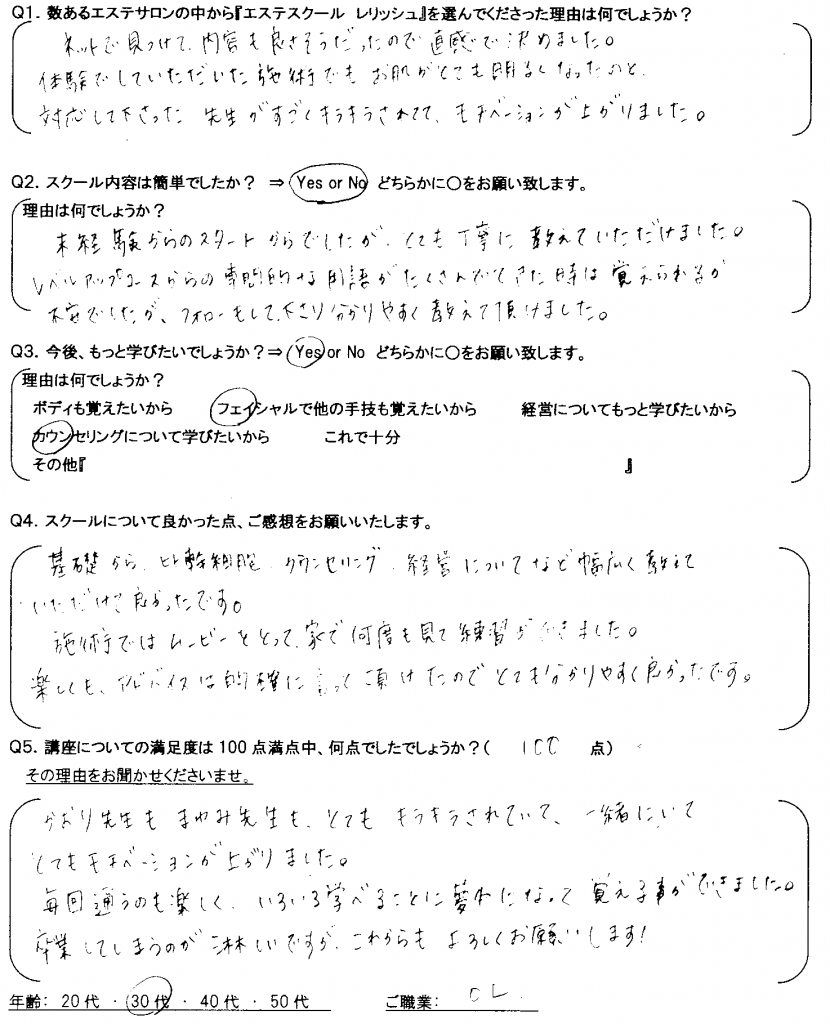 Q1. 数あるエステサロンの中から『エステスクール レリッシュ』を選んでくださった理由は何でしょうか？
ネットで見つけて、内容も良さそうだったので直感で決めました。
体験でしていただいた施術でもお肌がとても明るくなったのと、
対応して下さった 先生がすごくキラキラされてて、モチベーションが上がりました。
Q2. スクール内容は簡単でしたか？ ⇒ Yes or No どちらかに○をお願い致します。
理由は何でしょうか？
未経験からのスタートからでしたが、とても丁寧に教えていただけました。
レベルアップコースからの専門的な用語がたくさんでてきた時は覚えられるか
不安でしたが、フォローもして下さり分かりやすく教えて頂けました。
Q3. 今後、もっと学びたいでしょうか？⇒ Yes or No どちらかに○をお願い致します。
理由は何でしょうか？
ボディも覚えたいから フェイシャルで他の手技も覚えたいから 経営についてもっと学びたいから
カウンセリングについて学びたいから これで十分
その他『 』
Q4. スクールについて良かった点、ご感想をお願いいたします。
基礎から、ヒト幹細胞、カウンセリング、経営についてなど幅広く教えて
いただけて良かったです。
施術ではムービーをとって、家で何度も見て練習ができました。
楽しくも、アドバイスは的確に言って頂けたのでとても分かりやすく良かったです。
Q5. 講座についての満足度は 100 点満点中、何点でしたでしょうか？( 100 点)
その理由をお聞かせくださいませ。
かおり先生も まゆみ先生も、とても キラキラされていて、一緒にいて
とてもモチベーションが上がりました。
毎回通うのも楽しく、いろいろ学べることに夢中になって 覚える事ができました。
卒業してしまうのが淋しいですが、これからも よろしくお願いします!
年齢: 20代 ・ 30代 ・ 40代 ・ 50代 ご職業: OL